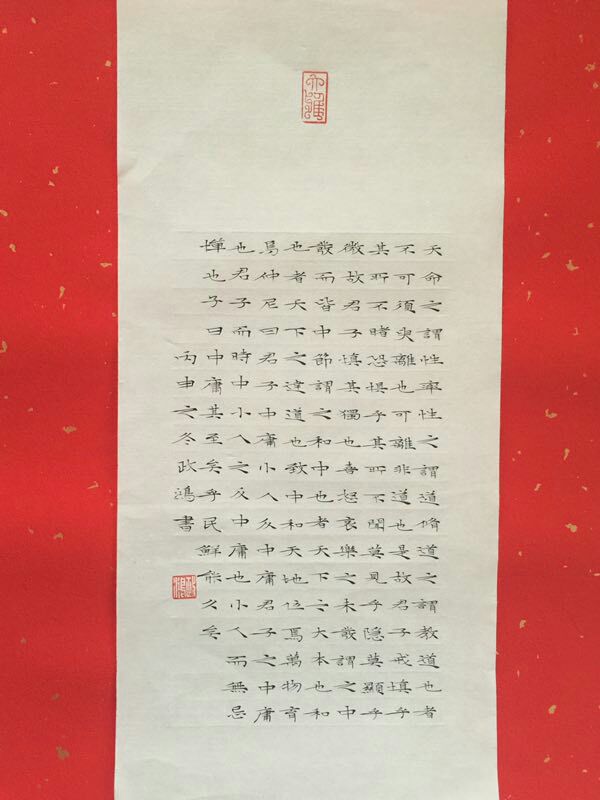 天命之謂性率性之謂道脩道之謂教道也者
不可須臾離也可離非道也是故君子戒慎乎
其所不睹恐懼乎其所不聞莫見乎隱莫顯乎
微故君子慎其獨也喜怒哀樂之未發謂之中
發而皆中節謂之和中也者天下之大本也和
也者天下之達道也致中和天地位焉萬物育
焉仲尼曰君子中庸小人反中庸君子之中庸
也君子而時中小人之反中庸也小人而無忌
憚也子曰中庸其至矣乎民鮮能久矣
丙申之冬政鴻書
政鴻